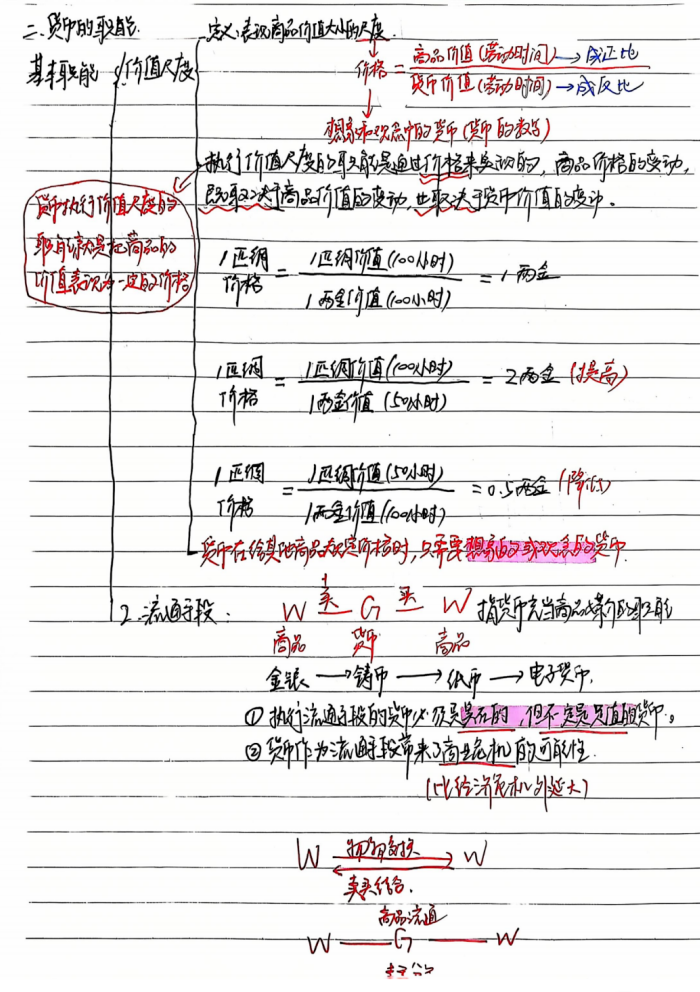 二、货币的职能.
基本职能 1 价值尺度
定义:表现商品价值大小的尺度.
价格 = 商品价值(劳动时间) → 成正比
货币价值(劳动时间) → 成反比
想象和观念中的货币(货币的数字)
执行价值尺度的职能是通过价格来实现的, 商品价格的变动,
既取决于商品价值的变动, 也取决于货币价值的变动。
货币执行价值尺度的
职能就是把商品的
价值表现为一定的价格
1匹绸价格 = 1匹绸价值(100小时) = 1两金
1两金价值(100小时)
1匹绸价格 = 1匹绸价值(100小时) = 2两金 (提高)
1两金价值(50小时)
1匹绸价格 = 1匹绸价值(50小时) = 0.5两金 (降低)
1两金价值(100小时)
货币在给其他商品决定价格时, 只需要想象的或观念的货币.
2.流通手段: W 卖 G 买 W 指货币充当商品交换的职能
商品 货币 商品
金银 → 铸币 → 纸币 → 电子货币.
① 执行流通手段的货币必须是实在的, 但不一定是足值的货币。
② 货币作为流通手段带来了商业危机的可能性.
(比经济危机外延大)
W 物物交换 W
买卖结合.
商品流通
W — G — W